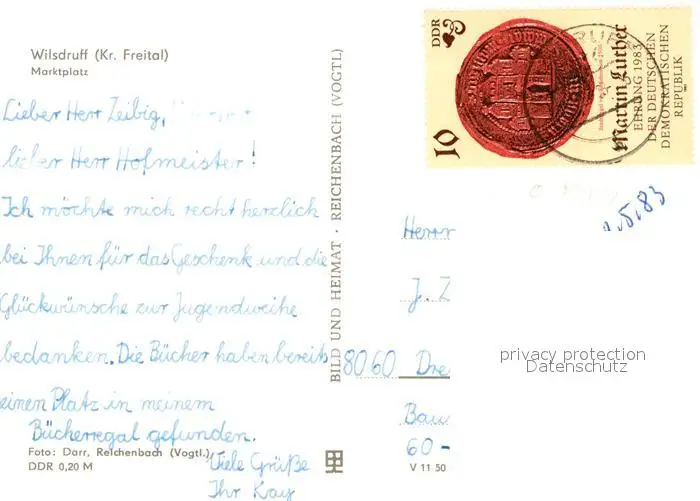 Wilsdruff (Kr. Freital)
Marktplatz
Lieber Herr Zeibig,
lieber Herr Hofmeister!
Ich möchte mich recht herzlich
bei Ihnen für das Geschenk und die
Glückwünsche zur Jugendweihe
bedanken. Die Bücher haben bereits
einen Platz in meinem
Bücherregal gefunden.
Viele Grüße
Ihr Kay
Foto: Darr, Reichenbach (Vogtl.)
DDR 0,20 M
V 11 50
BILD UND HEIMAT · REICHENBACH (VOGTL)
DDR
10
Martin Luther
EHRUNG 1983
DER DEUTSCHEN
DEMOKRATISCHEN
REPUBLIK
.5.83
Herrn
J. Z
8060 Dre
Bau
60-
privacy protection
Datenschutz